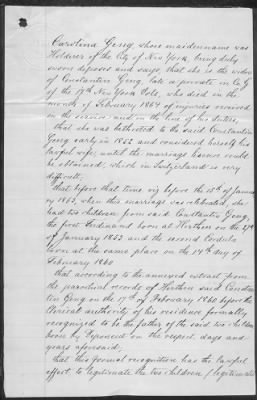 Carolina Geng, whose maiden name was
Holdiner of the City of New York, being duly
sworn deposes and says, that she is the widow
of Constantin Geng, late a private in Co G
of the 17th New York Vols, who died in the
month of February 1864 of injuries received
in the service and in the line of his duties,
that she was betrothed to the said Constantin
Geng early in 1852 and considered herself his
lawful wife, until the marriage license could
be obtained, which in Switzerland is very
difficult;
that before that time viz before the 15th of Janua
ry 1863, when this marriage was celebrated, she
had two children from said Constantin Geng,
the first Ferdinand born at Herthen on the 27th
of January 1853 and the second Cordula
born at the same place on the 14th day of
February 1860
that according to the annexed extract from
the parochial records of Herthen said Constan
tin Geng on the 17th of February 1860 before the
Clerical authority of his residence formally
recognized to be the father of the said two children
born by Deponent on the respect. days and
years aforesaid;
that this formal recognition has the lawful
effect to legitimate the two children